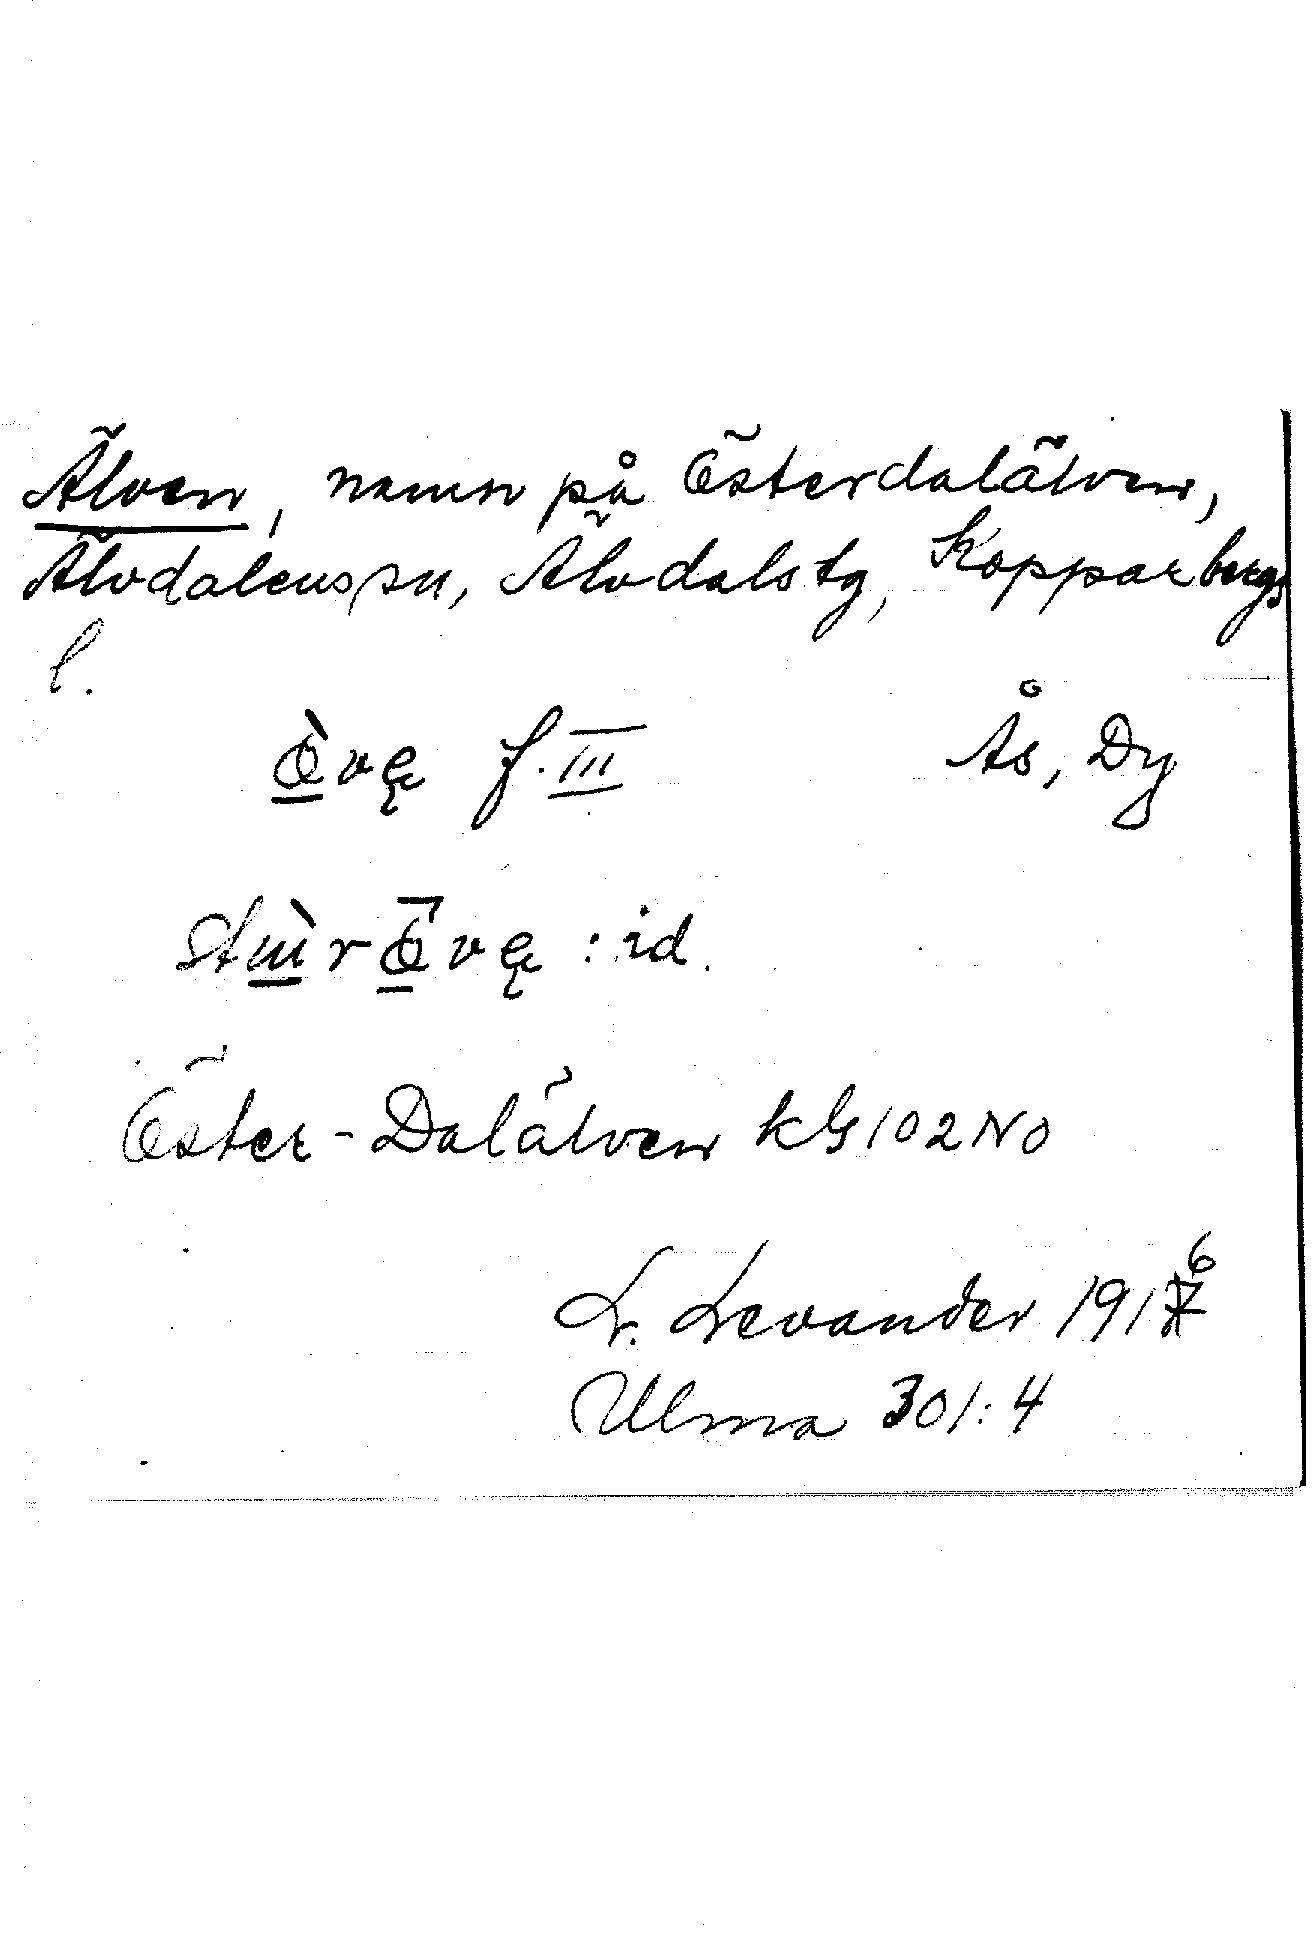 Älven, namn på Österdalälven,
Älvdalens sn, Älvdals tg, Kopparbergs
l.
f. III Ås, Dy
: id.
Öster-Dalälven kG 102 NO
L. Levander 1916
Ulma 301:4